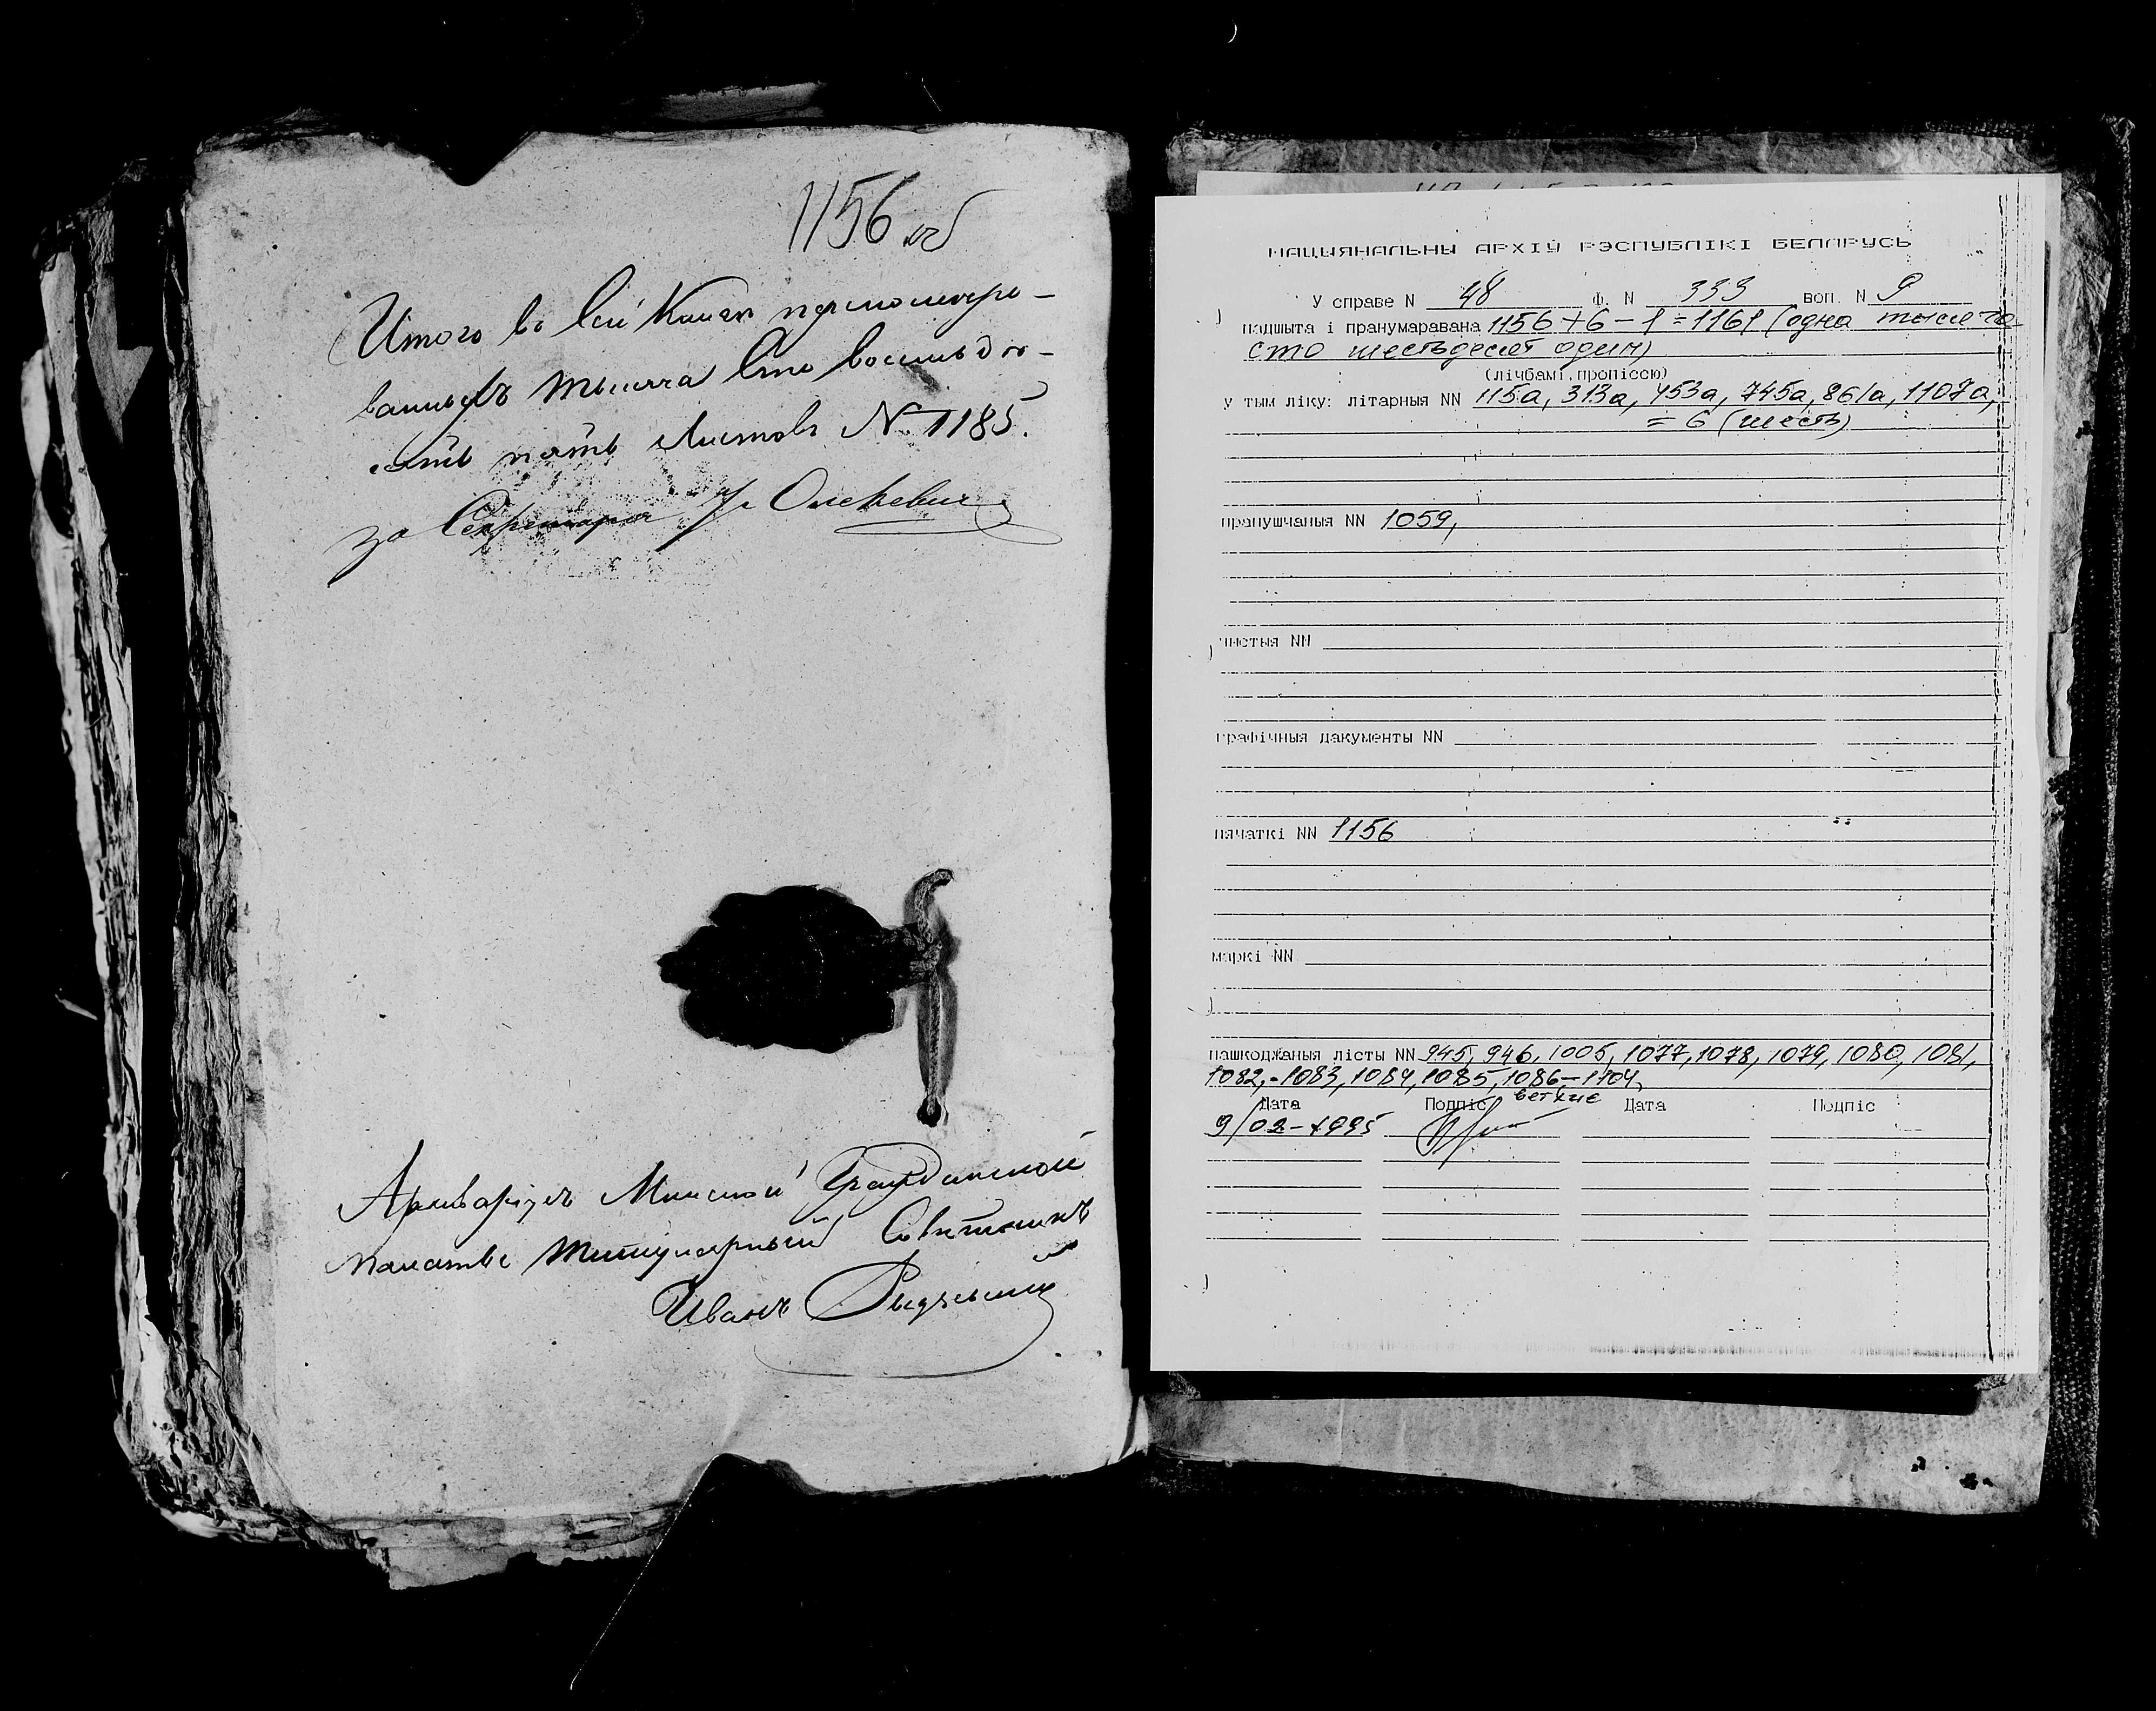 1156 об
Итого въ сей Книге перномеро-
ванныхъ тысяча сто восемьде-
сятъ пять листовъ N 1185.
за Секретаря
Архиваріусъ Минской Гражданской
палаты Титулярный Советникъ
Иванъ
НАЦЫЯНАЛЬНЫ АРХІЎ РЭСПУБЛІКІ БЕЛАРУСЬ
У справе N 48 Ф. N 333 воп. N 9
падшыта і пранумаравана 1156+6-1=1161 (одна тысяча
сто шестьдесят один)
(лічбамі, пропіссю)
у тым ліку: літарныя NN 115а, 313а, 453а, 745а, 861а, 1107а,
= 6 (шесть)
прапушчаныя NN 1059,
чыстыя NN
графічныя дакументы NN
пячаткі NN 1156
маркі NN
пашкоджаныя лісты NN 945, 946, 1005, 1077, 1078, 1079, 1080, 1081,
1082,-1083, 1084, 1085, 1086-1104,
ветхие
Дата Подпіс Дата Подпіс
9/02-1995